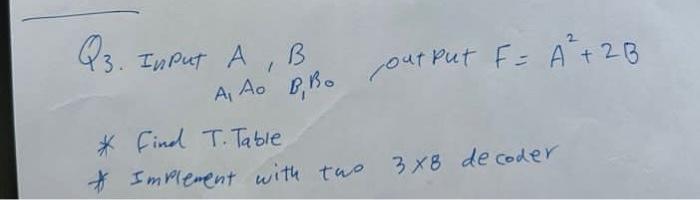 Q3. Input A , B , output F = A² + 2B
A₁ A₀ B₁ B₀
* Find T. Table
* Implement with two 3x8 decoder